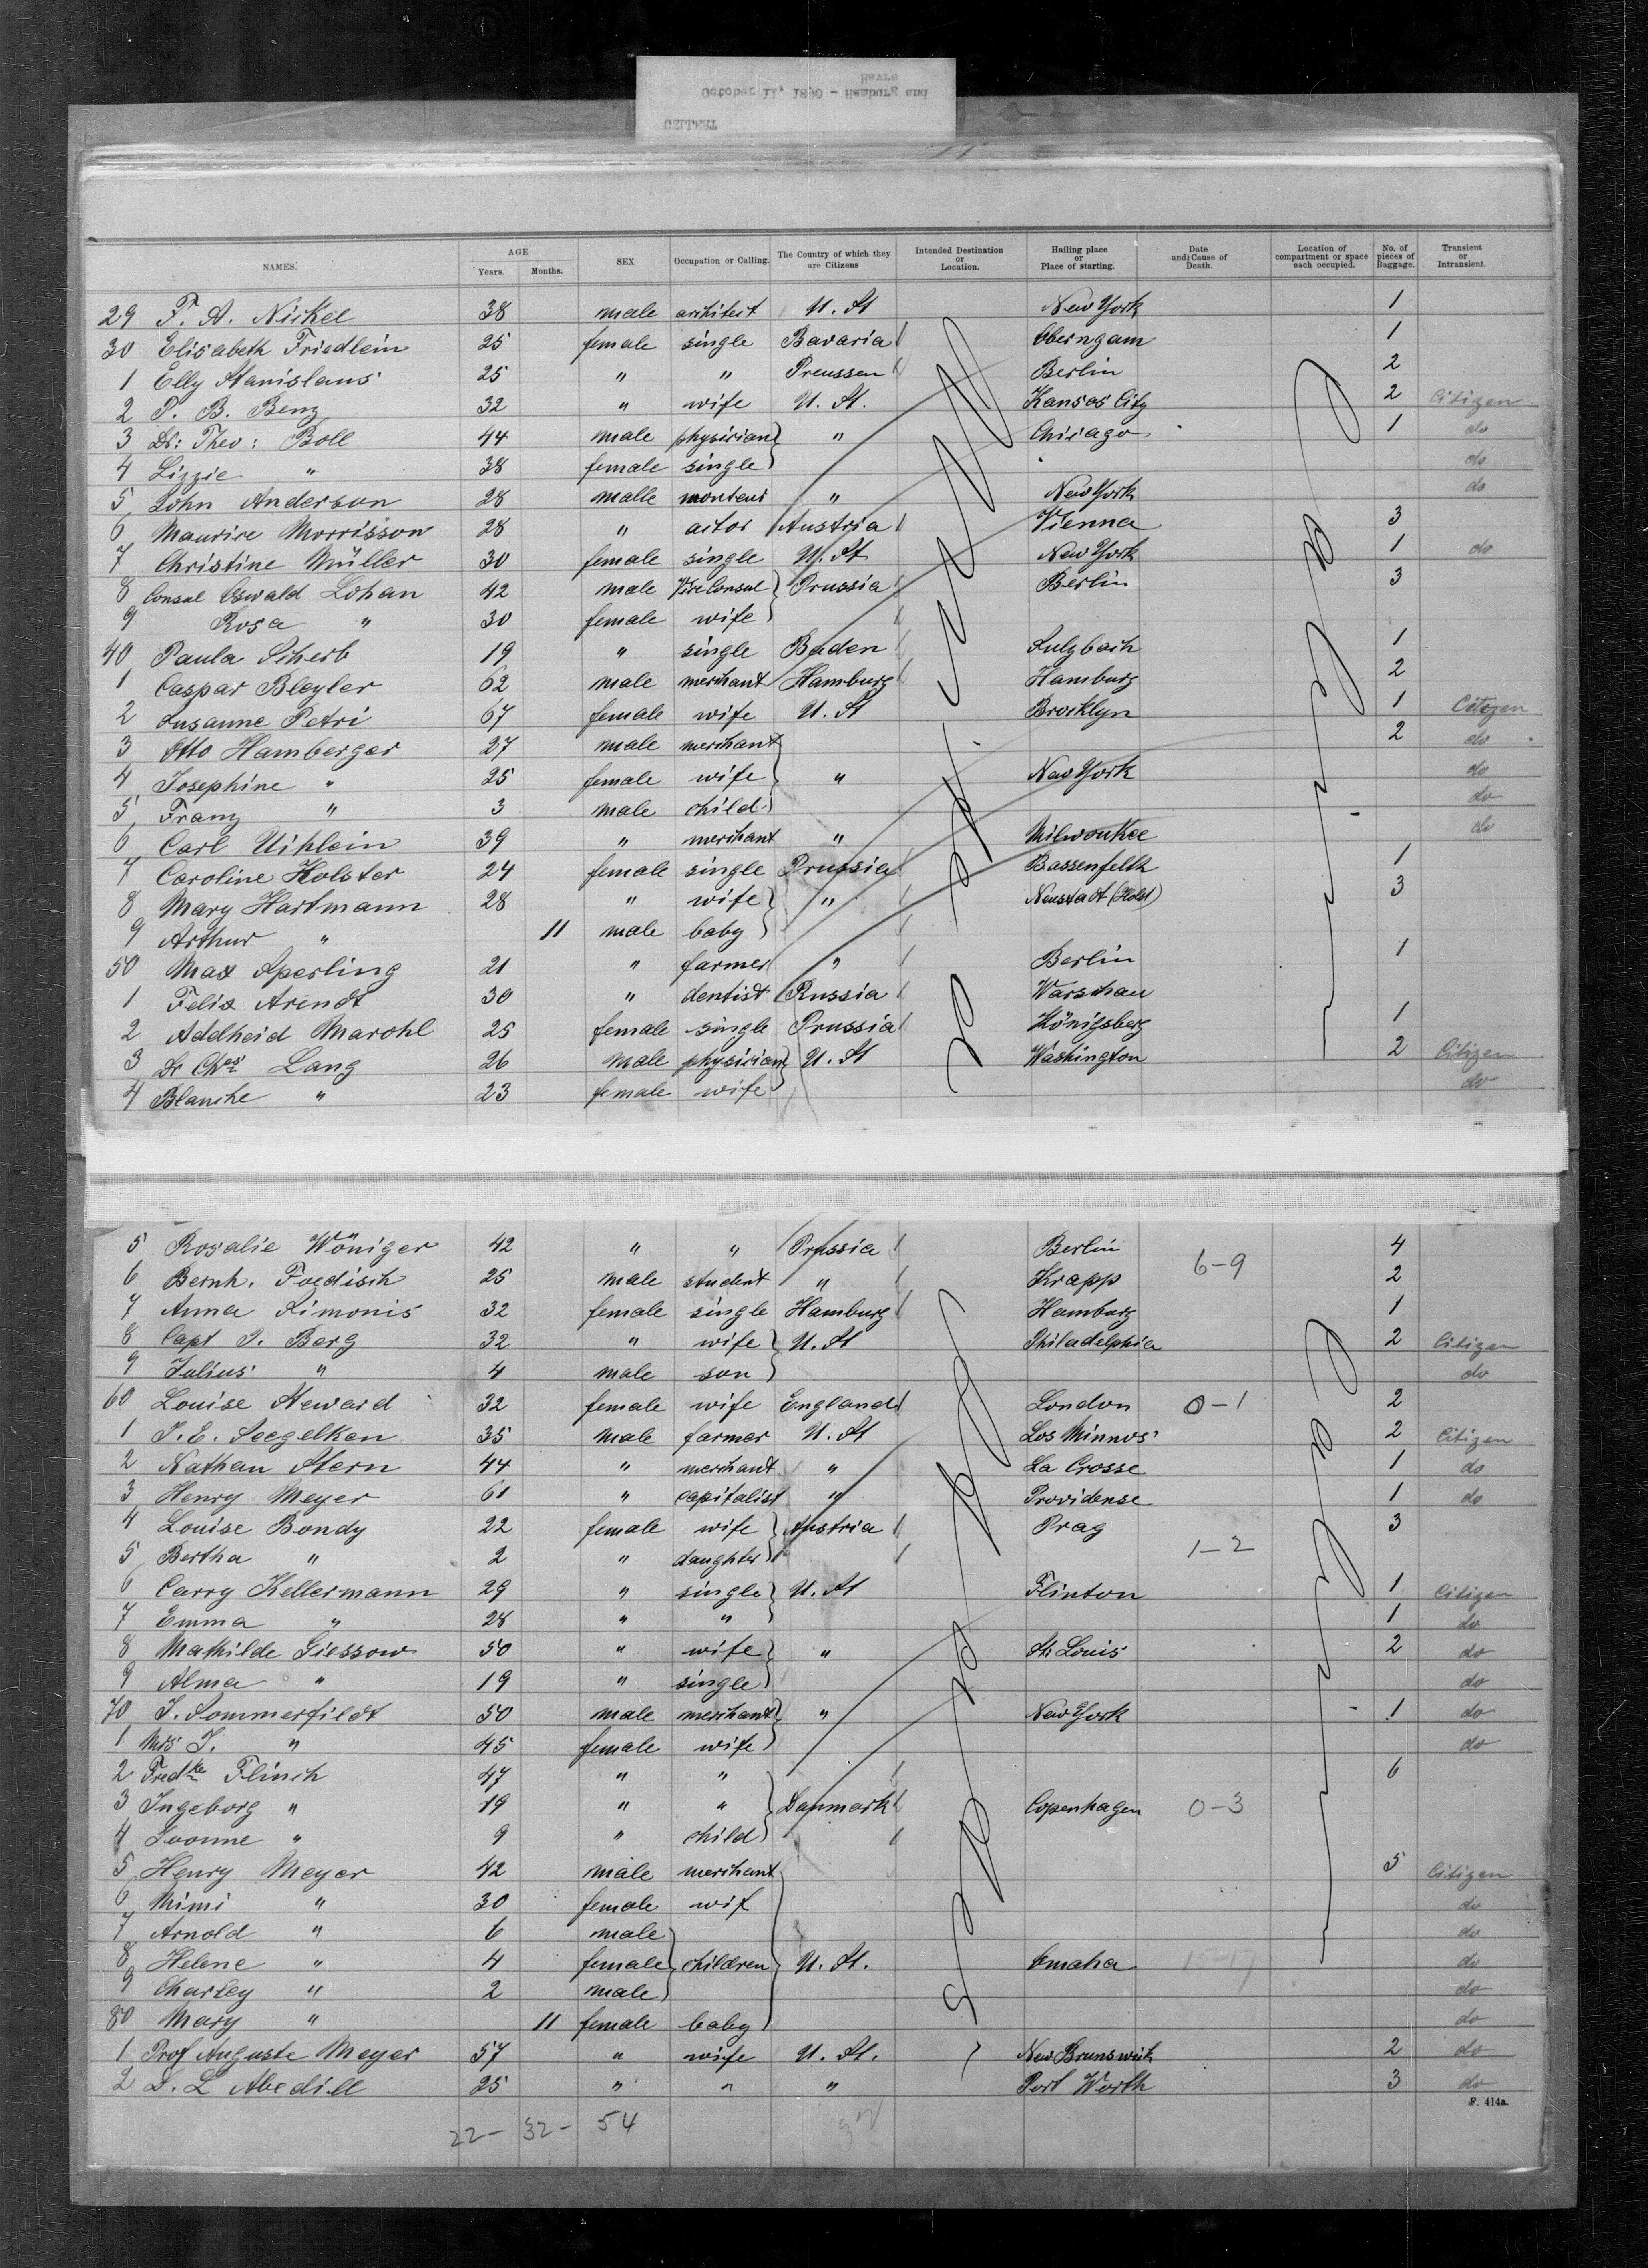 Havre
October 11, 1890 - Hamburg and
GELLERT
NAMES. AGE Years. Months. SEX Occupation or Calling. The Country of which they are Citizens Intended Destination or Location. Hailing place or Place of starting. Date and Cause of Death. Location of compartment or space each occupied. No. of pieces of Baggage. Transient or Intransient.
29 F. A. Nickel 38 male architect U. St New York 1
30 Elisabeth Friedlein 25 female single Bavaria Oberngam 1
1 Elly Stanislaus 25 " " Preussen Berlin 2
2 P. B. Benz 32 " wife U. St. Kansas City 2 Citizen
3 Dr: Theo: Boll 44 male physician " Chicago 1 do
4 Lizzie " 38 female single do
5 John Anderson 28 malle monteur " New York do
6 Maurice Morrisson 28 " actor Austria Vienna 3
7 Christine Müller 30 female single U. St New York 1 do
8 Consul Oswald Lohan 42 male Vice Consul Prussia Berlin 3
9 Rosa " 30 female wife
40 Paula Scherb 19 " single Baden Sulzbach 1
1 Caspar Bleyler 62 male merchant Hamburg Hamburg 2
2 Susanne Petri 67 female wife U. St Brocklyn 1 Citizen
3 Otto Hamberger 27 male merchant 2 do
4 Josephine " 25 female wife " New York do
5 Franz " 3 male child do
6 Carl Uihlein 39 " merchant " Milwoukee do
7 Caroline Holster 24 female single Prussia Bassenfleth 1
8 Mary Hartmann 28 " wife " Neustadt (Holst) 3
9 Arthur " 11 male baby
50 Max Sperling 21 " farmer " Berlin 1
1 Felix Arendt 30 " dentist Russia Warschau
2 Addheid Marohl 25 female single Prussia Königsberg 1
3 Dr Chas Lang 26 male physician U. St Washington 2 Citizen
4 Blanche " 23 female wife do
5 Rosalie Wöniger 42 " " Prussia Berlin 6-9 4
6 Bernh. Foedisch 25 male student " Krapp 2
7 Anna Simonis 32 female single Hamburg Hamburg 1
8 Capt J. Berg 32 " wife U. St Philadelphia 2 Citizen
9 Julius " 4 male son do
60 Louise Steward 32 female wife England London 0-1 2
1 J. E. Seegelken 35 male farmer U. St Los Minnos 2 Citizen
2 Nathan Stern 44 " merchant " La Crosse 1 do
3 Henry Meyer 61 " capitalist " Providense 1 do
4 Louise Bondy 22 female wife Austria Prag 3
5 Bertha " 2 " daughter 1-2
6 Carry Kellermann 29 " single U. St Flinton 1 Citizen
7 Emma " 28 " " 1 do
8 Mathilde Giessow 50 " wife " St. Louis 2 do
9 Alma " 19 " single do
70 J. Sommerfildt 50 male merchant " New York 1 do
1 Mrs J. " 45 female wife do
2 Fredke Flinch 47 " " 6
3 Ingeborg " 19 " " Danmark Copenhagen 0-3
4 Ivonne " 9 " child
5 Henry Meyer 42 male merchant 5 Citizen
6 Mimi " 30 female wif do
7 Arnold " 6 male do
8 Helene " 4 female children U. St. Omaha do
9 Charley " 2 male do
80 Mary " 11 female baby do
1 Prof Auguste Meyer 57 " wife U. St. New Brunswick 2 do
2 D. L Abedill 25 " " " Port Worth 3 do
F. 414a.
22- 32- 54